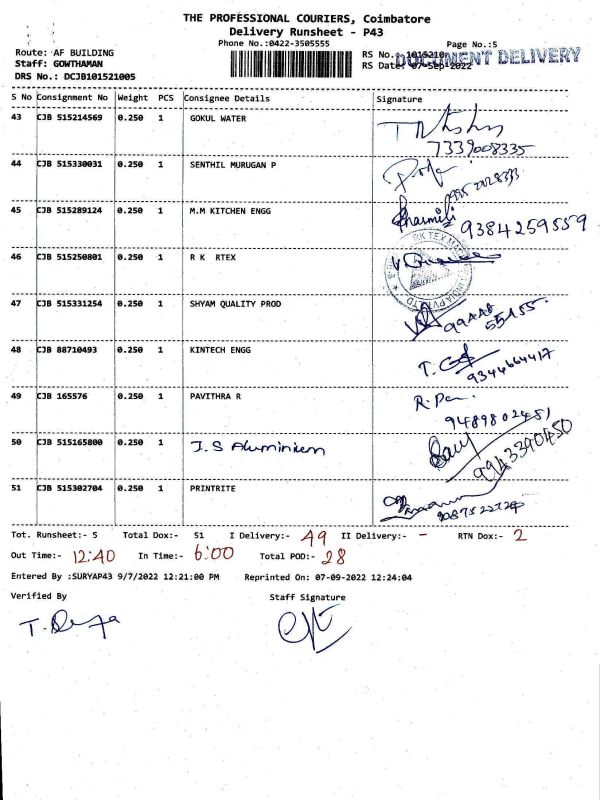 THE PROFESSIONAL COURIERS, Coimbatore
Delivery Runsheet - P43
Phone No.:0422-3505555
Page No.:5
Route: AF BUILDING
RS No.: 1015210
DOCUMENT DELIVERY
Staff: GOWTHAMAN
RS Date: 07-Sep-2022
DRS No.: DCJB101521005
S No Consignment No Weight PCS Consignee Details Signature
43 CJB 515214569 0.250 1 GOKUL WATER
7339008335
44 CJB 515330031 0.250 1 SENTHIL MURUGAN P
45 CJB 515289124 0.250 1 M.M KITCHEN ENGG
Sharmili 9384259559
46 CJB 515250801 0.250 1 R K RTEX
47 CJB 515331254 0.250 1 SHYAM QUALITY PROD
48 CJB 88710493 0.250 1 KINTECH ENGG
9344664417
49 CJB 165576 0.250 1 PAVITHRA R
9489802451
50 CJB 515165800 0.250 1 J.S Aluminium
9943390450
51 CJB 515302704 0.250 1 PRINTRITE
Tot. Runsheet:- 5 Total Dox:- 51 I Delivery:- 49 II Delivery:- - RTN Dox:- 2
Out Time:- 12:40 In Time:- 6:00 Total POD:- 28
Entered By :SURYAP43 9/7/2022 12:21:00 PM Reprinted On: 07-09-2022 12:24:04
Verified By Staff Signature